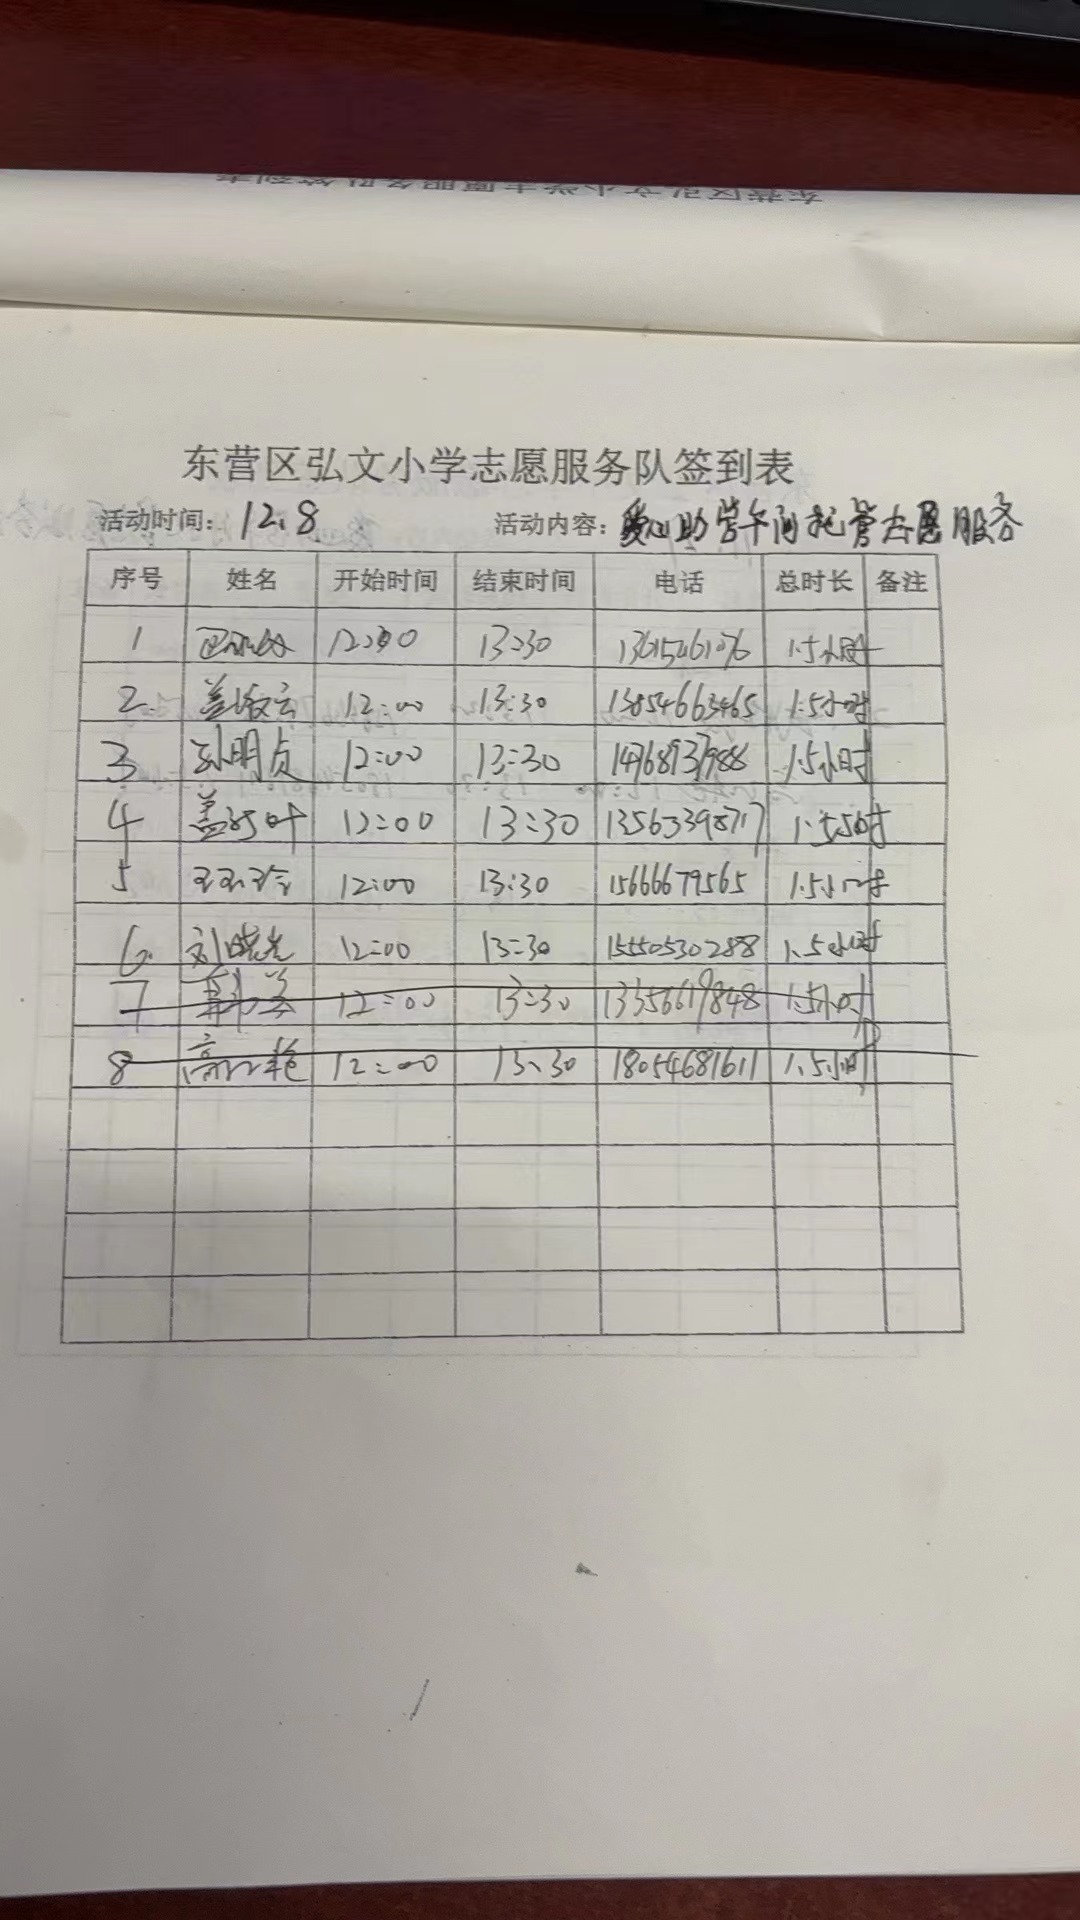 东营区弘文小学志愿服务队签到表
活动时间：12.8 活动内容：爱心助学午间托管志愿服务
序号 姓名 开始时间 结束时间 电话 总时长 备注
1 12:00 13:30 1.5小时
2. 盖 云 12:00 13:30 13854663465 1.5小时
3 孙明贞 12:00 13:30 1.5小时
4 盖 叶 12:00 13:30 13563398717 1.5小时
5 王玉玲 12:00 13:30 15666679565 1.5小时
6. 刘晓光 12:00 13:30 15550530288 1.5小时
7 12:00 13:30 13356619848 1.5小时
8 高 艳 12:00 13:30 18054681611 1.5小时